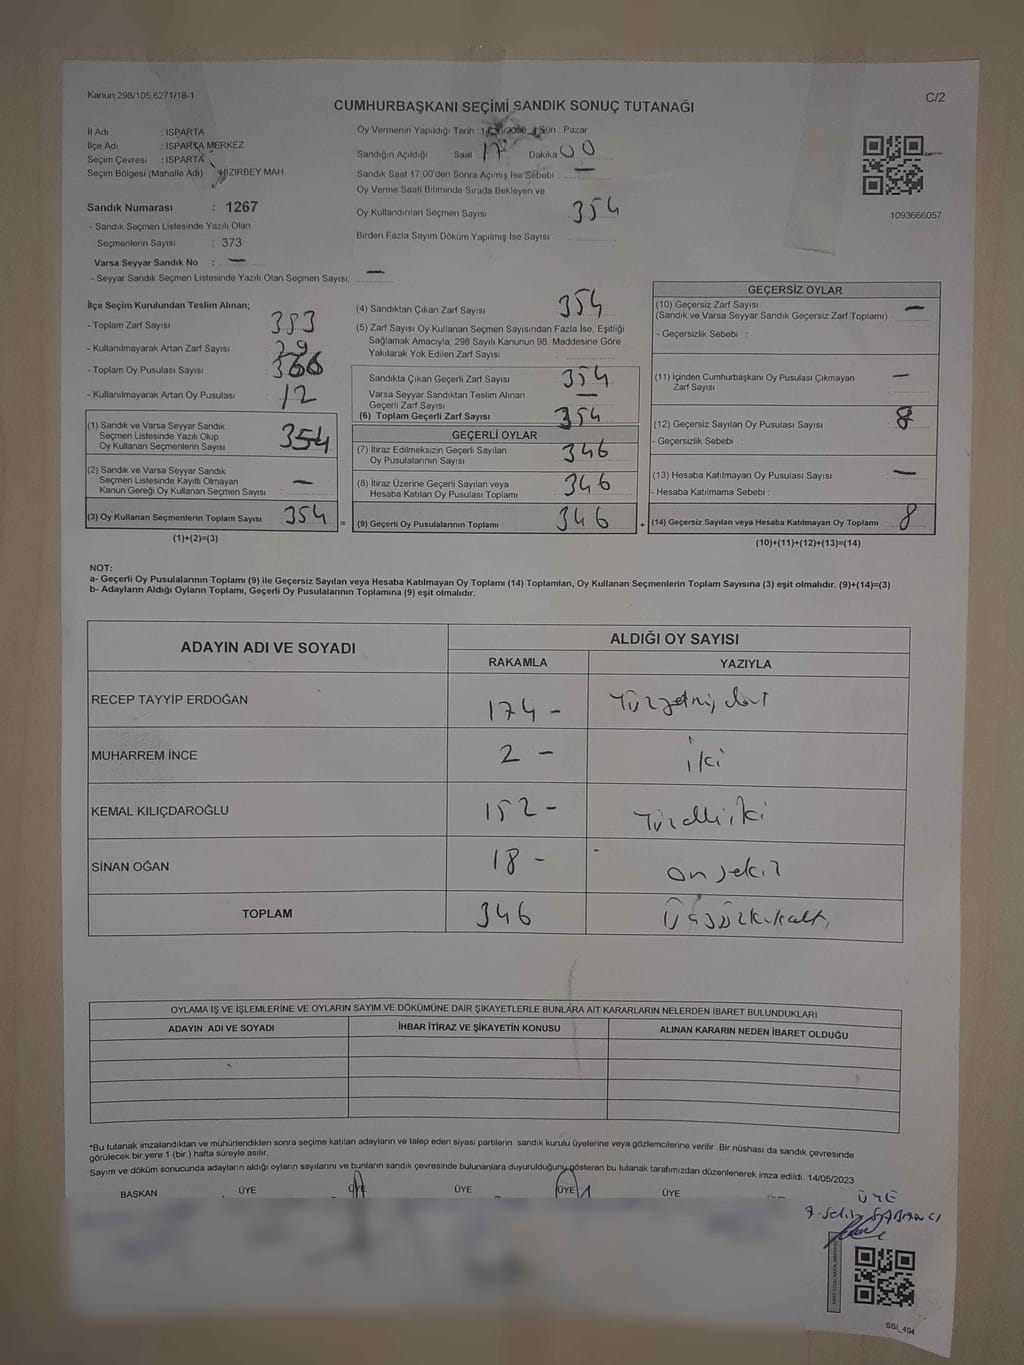 Kanun;298/105,6271/18-1
C/2
CUMHURBAŞKANI SEÇİMİ SANDIK SONUÇ TUTANAĞI
İl Adı : ISPARTA
İlçe Adı : ISPARTA MERKEZ
Seçim Çevresi : ISPARTA
Seçim Bölgesi (Mahalle Adı) : HIZIRBEY MAH
Oy Vermenin Yapıldığı Tarih : Gün : Pazar
Sandığın Açıldığı Saat 17 Dakika 00
Sandık Saat 17:00'den Sonra Açımış İse Sebebi : —
Oy Verme Saati Bitiminde Sırada Bekleyen ve
Oy Kullandırılan Seçmen Sayısı 354
Birden Fazla Sayım Döküm Yapılmış İse Sayısı :
1093666057
Sandık Numarası : 1267
- Sandık Seçmen Listesinde Yazılı Olan
Seçmenlerin Sayısı : 373
Varsa Seyyar Sandık No : —
- Seyyar Sandık Seçmen Listesinde Yazılı Olan Seçmen Sayısı: —
İlçe Seçim Kurulundan Teslim Alınan;
- Toplam Zarf Sayısı 383
- Kullanılmayarak Artan Zarf Sayısı 29
- Toplam Oy Pusulası Sayısı 366
- Kullanılmayarak Artan Oy Pusulası 12
(1) Sandık ve Varsa Seyyar Sandık
Seçmen Listesinde Yazılı Olup
Oy Kullanan Seçmenlerin Sayısı 354
(2) Sandık ve Varsa Seyyar Sandık
Seçmen Listesinde Kayıtlı Olmayan
Kanun Gereği Oy Kullanan Seçmen Sayısı —
(3) Oy Kullanan Seçmenlerin Toplam Sayısı 354 =
(1)+(2)=(3)
(4) Sandıktan Çıkan Zarf Sayısı 354
(5) Zarf Sayısı Oy Kullanan Seçmen Sayısından Fazla İse, Eşitliği
Sağlamak Amacıyla; 298 Sayılı Kanunun 98. Maddesine Göre
Yakılarak Yok Edilen Zarf Sayısı
Sandıkta Çıkan Geçerli Zarf Sayısı 354
Varsa Seyyar Sandıktan Teslim Alınan
Geçerli Zarf Sayısı —
(6) Toplam Geçerli Zarf Sayısı 354
GEÇERLİ OYLAR
(7) İtiraz Edilmeksizin Geçerli Sayılan
Oy Pusulalarının Sayısı 346
(8) İtiraz Üzerine Geçerli Sayılan veya
Hesaba Katılan Oy Pusulası Toplamı 346
(9) Geçerli Oy Pusulalarının Toplamı 346 +
GEÇERSİZ OYLAR
(10) Geçersiz Zarf Sayısı
(Sandık ve Varsa Seyyar Sandık Geçersiz Zarf Toplamı) : —
- Geçersizlik Sebebi :
(11) İçinden Cumhurbaşkanı Oy Pusulası Çıkmayan
Zarf Sayısı —
(12) Geçersiz Sayılan Oy Pusulası Sayısı 8
- Geçersizlik Sebebi :
(13) Hesaba Katılmayan Oy Pusulası Sayısı —
- Hesaba Katılmama Sebebi :
(14) Geçersiz Sayılan veya Hesaba Katılmayan Oy Toplamı 8
(10)+(11)+(12)+(13)=(14)
NOT:
a- Geçerli Oy Pusulalarının Toplamı (9) ile Geçersiz Sayılan veya Hesaba Katılmayan Oy Toplamı (14) Toplamları, Oy Kullanan Seçmenlerin Toplam Sayısına (3) eşit olmalıdır. (9)+(14)=(3)
b- Adayların Aldığı Oyların Toplamı, Geçerli Oy Pusulalarının Toplamına (9) eşit olmalıdır.
ADAYIN ADI VE SOYADI ALDIĞI OY SAYISI
RAKAMLA YAZIYLA
RECEP TAYYİP ERDOĞAN 174 - Yüzyetmiş dört
MUHARREM İNCE 2 - iki
KEMAL KILIÇDAROĞLU 152 - Yüzelli iki
SİNAN OĞAN 18 - on sekiz
TOPLAM 346 Üçyüzkırkaltı
OYLAMA İŞ VE İŞLEMLERİNE VE OYLARIN SAYIM VE DÖKÜMÜNE DAİR ŞİKAYETLERLE BUNLARA AİT KARARLARIN NELERDEN İBARET BULUNDUKLARI
ADAYIN ADI VE SOYADI İHBAR İTİRAZ VE ŞİKAYETİN KONUSU ALINAN KARARIN NEDEN İBARET OLDUĞU
*Bu tutanak imzalandıktan ve mühürlendikten sonra seçime katılan adayların ve talep eden siyasi partilerin sandık kurulu üyelerine veya gözlemcilerine verilir. Bir nüshası da sandık çevresinde
görülecek bir yere 1 (bir ) hafta süreyle asılır.
Sayım ve döküm sonucunda adayların aldığı oyların sayılarını ve bunların sandık çevresinde bulunanlara duyurulduğunu gösteren bu tutanak tarafımızdan düzenlenerek imza edildi. 14/05/2023
BAŞKAN ÜYE ÜYE ÜYE ÜYE
ÜYE
SSI_404